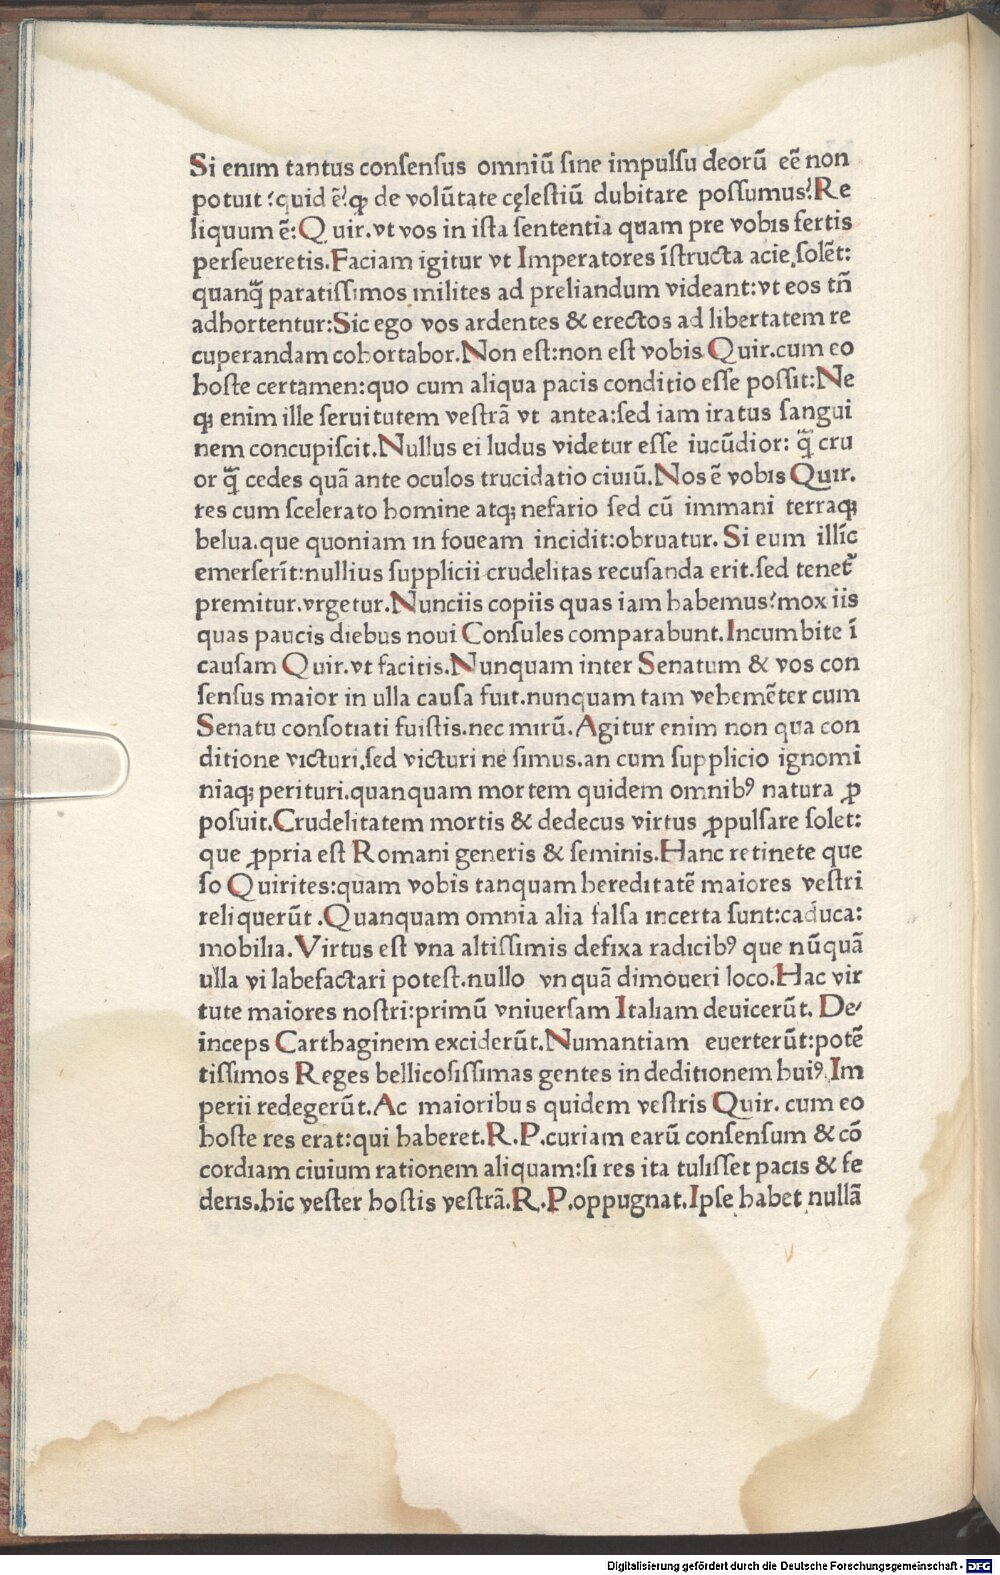 Si enim tantus conſenſus omniū ſine impulſu deorū eē non
potuit?quid ē?ꝙ de volūtate cęleſtiū dubitare poſſumus?Re
liquum ē:Quir.vt vos in iſta ſententia quam pre vobis fertis
perſeueretis.Faciam igitur vt Imperatores īſtructa acie ſolēt:
quanq̄ paratiſſimos milites ad preliandum videant:vt eos tn̄
adhortentur:Sic ego vos ardentes & erectos ad libertatem re
cuperandam cohortabor.Non eſt:non eſt vobis Quir.cum eo
hoſte certamen:quo cum aliqua pacis conditio eſſe poſſit:Ne
qꝫ enim ille ſeruitutem veſtrā vt antea:ſed iam iratus ſangui
nem concupiſcit.Nullus ei ludus videtur eſſe iucūdior: q̄ cru
or q̄ cedes quā ante oculos trucidatio ciuiū.Nos ē vobis Quir.
tes cum ſcelerato homine atqꝫ nefario ſed cū immani terraqꝫ
belua.que quoniam in foueam incidit:obruatur. Si eum illīc
emerſerīt:nullius ſupplicii crudelitas recuſanda erit.ſed tenet᷑
premitur.vrgetur.Nunciis copiis quas iam habemus?mox iis
quas paucis diebus noui Conſules comparabunt.Incumbite ī
cauſam Quir.vt facitis.Nunquam inter Senatum & vos con
ſenſus maior in ulla cauſa fuit.nunquam tam vehemēter cum
Senatu conſotiati fuiſtis.nec mirū.Agitur enim non qua con
ditione victuri.ſed victuri ne ſimus.an cum ſupplicio ignomi
niaqꝫ perituri.quanquam mortem quidem omnibꝰ natura ꝓ
poſuit.Crudelitatem mortis & dedecus virtus ꝓpulſare ſolet:
que ꝓpria eſt Romani generis & ſeminis.Hanc retinete que
ſo Quirites:quam vobis tanquam hereditatē maiores veſtri
reliquerūt .Quanquam omnia alia falſa incerta ſunt:caduca:
mobilia.Virtus eſt vna altiſſimis defixa radicibꝰ que nūquā
ulla vi labefactari poteſt.nullo vnquā dimoueri loco.Hac vir
tute maiores noſtri:primū vniuerſam Italiam deuicerūt. De⸗
inceps Carthaginem exciderūt.Numantiam euerterūt:potē
tiſſimos Reges bellicoſiſſimas gentes in deditionem huiꝰ.Im
perii redegerūt.Ac maioribus quidem veſtris Quir. cum eo
hoſte res erat:qui haberet.R.P.curiam earū conſenſum & cō
cordiam ciuium rationem aliquam:ſi res ita tuliſſet pacis & fe
deris.hic veſter hoſtis veſtrā.R.P.oppugnat.Ipſe habet nullā
Digitalisierung gefördert durch die Deutsche Forschungsgemeinschaft - DFG